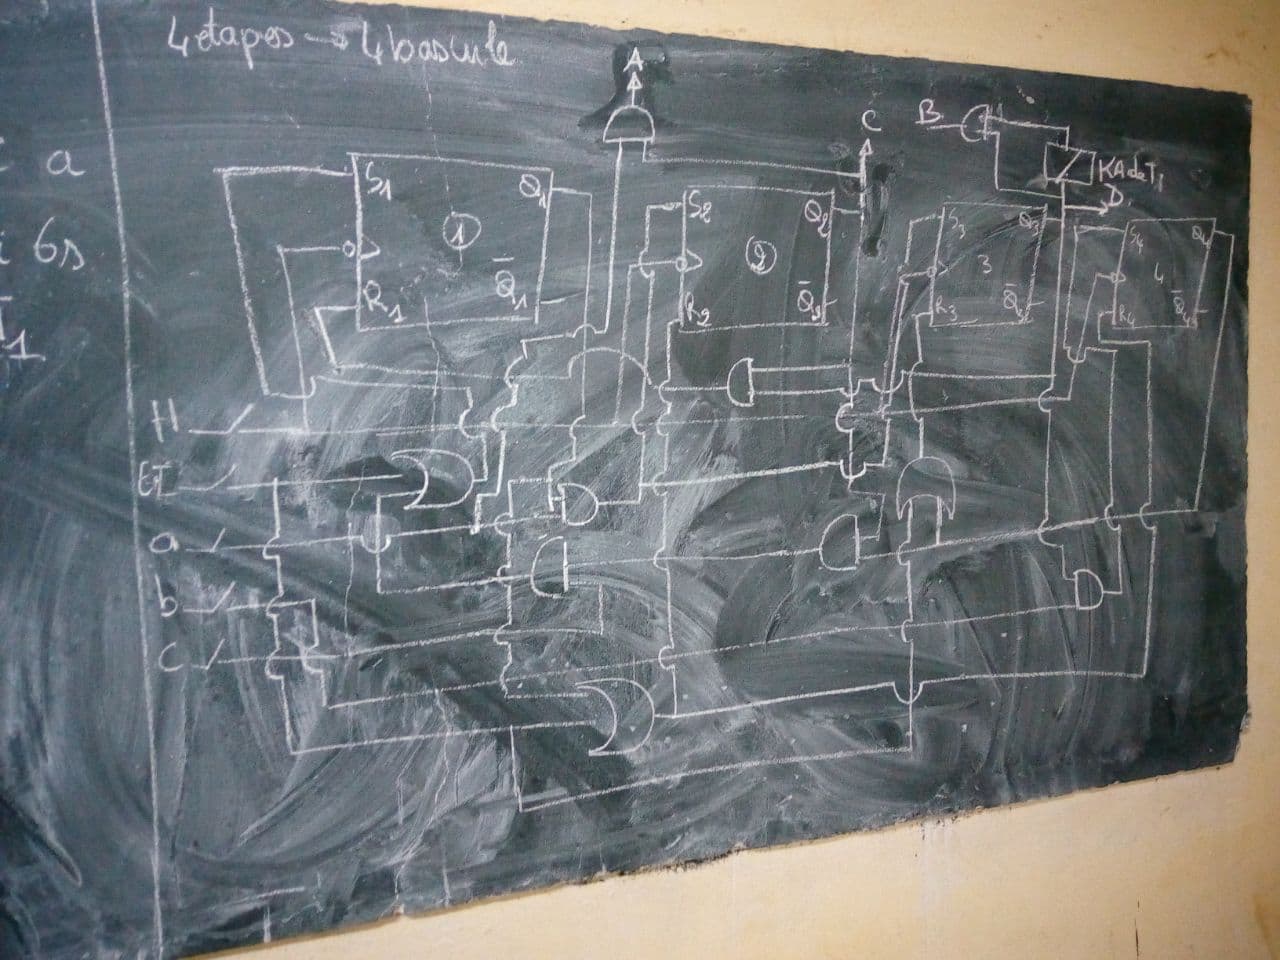 4 etapes → 4 bascule
a
6s
1
A
C
B
KA de T1
D
S1
Q1
1
R1
Q̅1
S2
Q2
2
R2
Q̅2
S3
Q3
3
R3
S4
Q4
4
R4
Q̅4
H
a
b
c